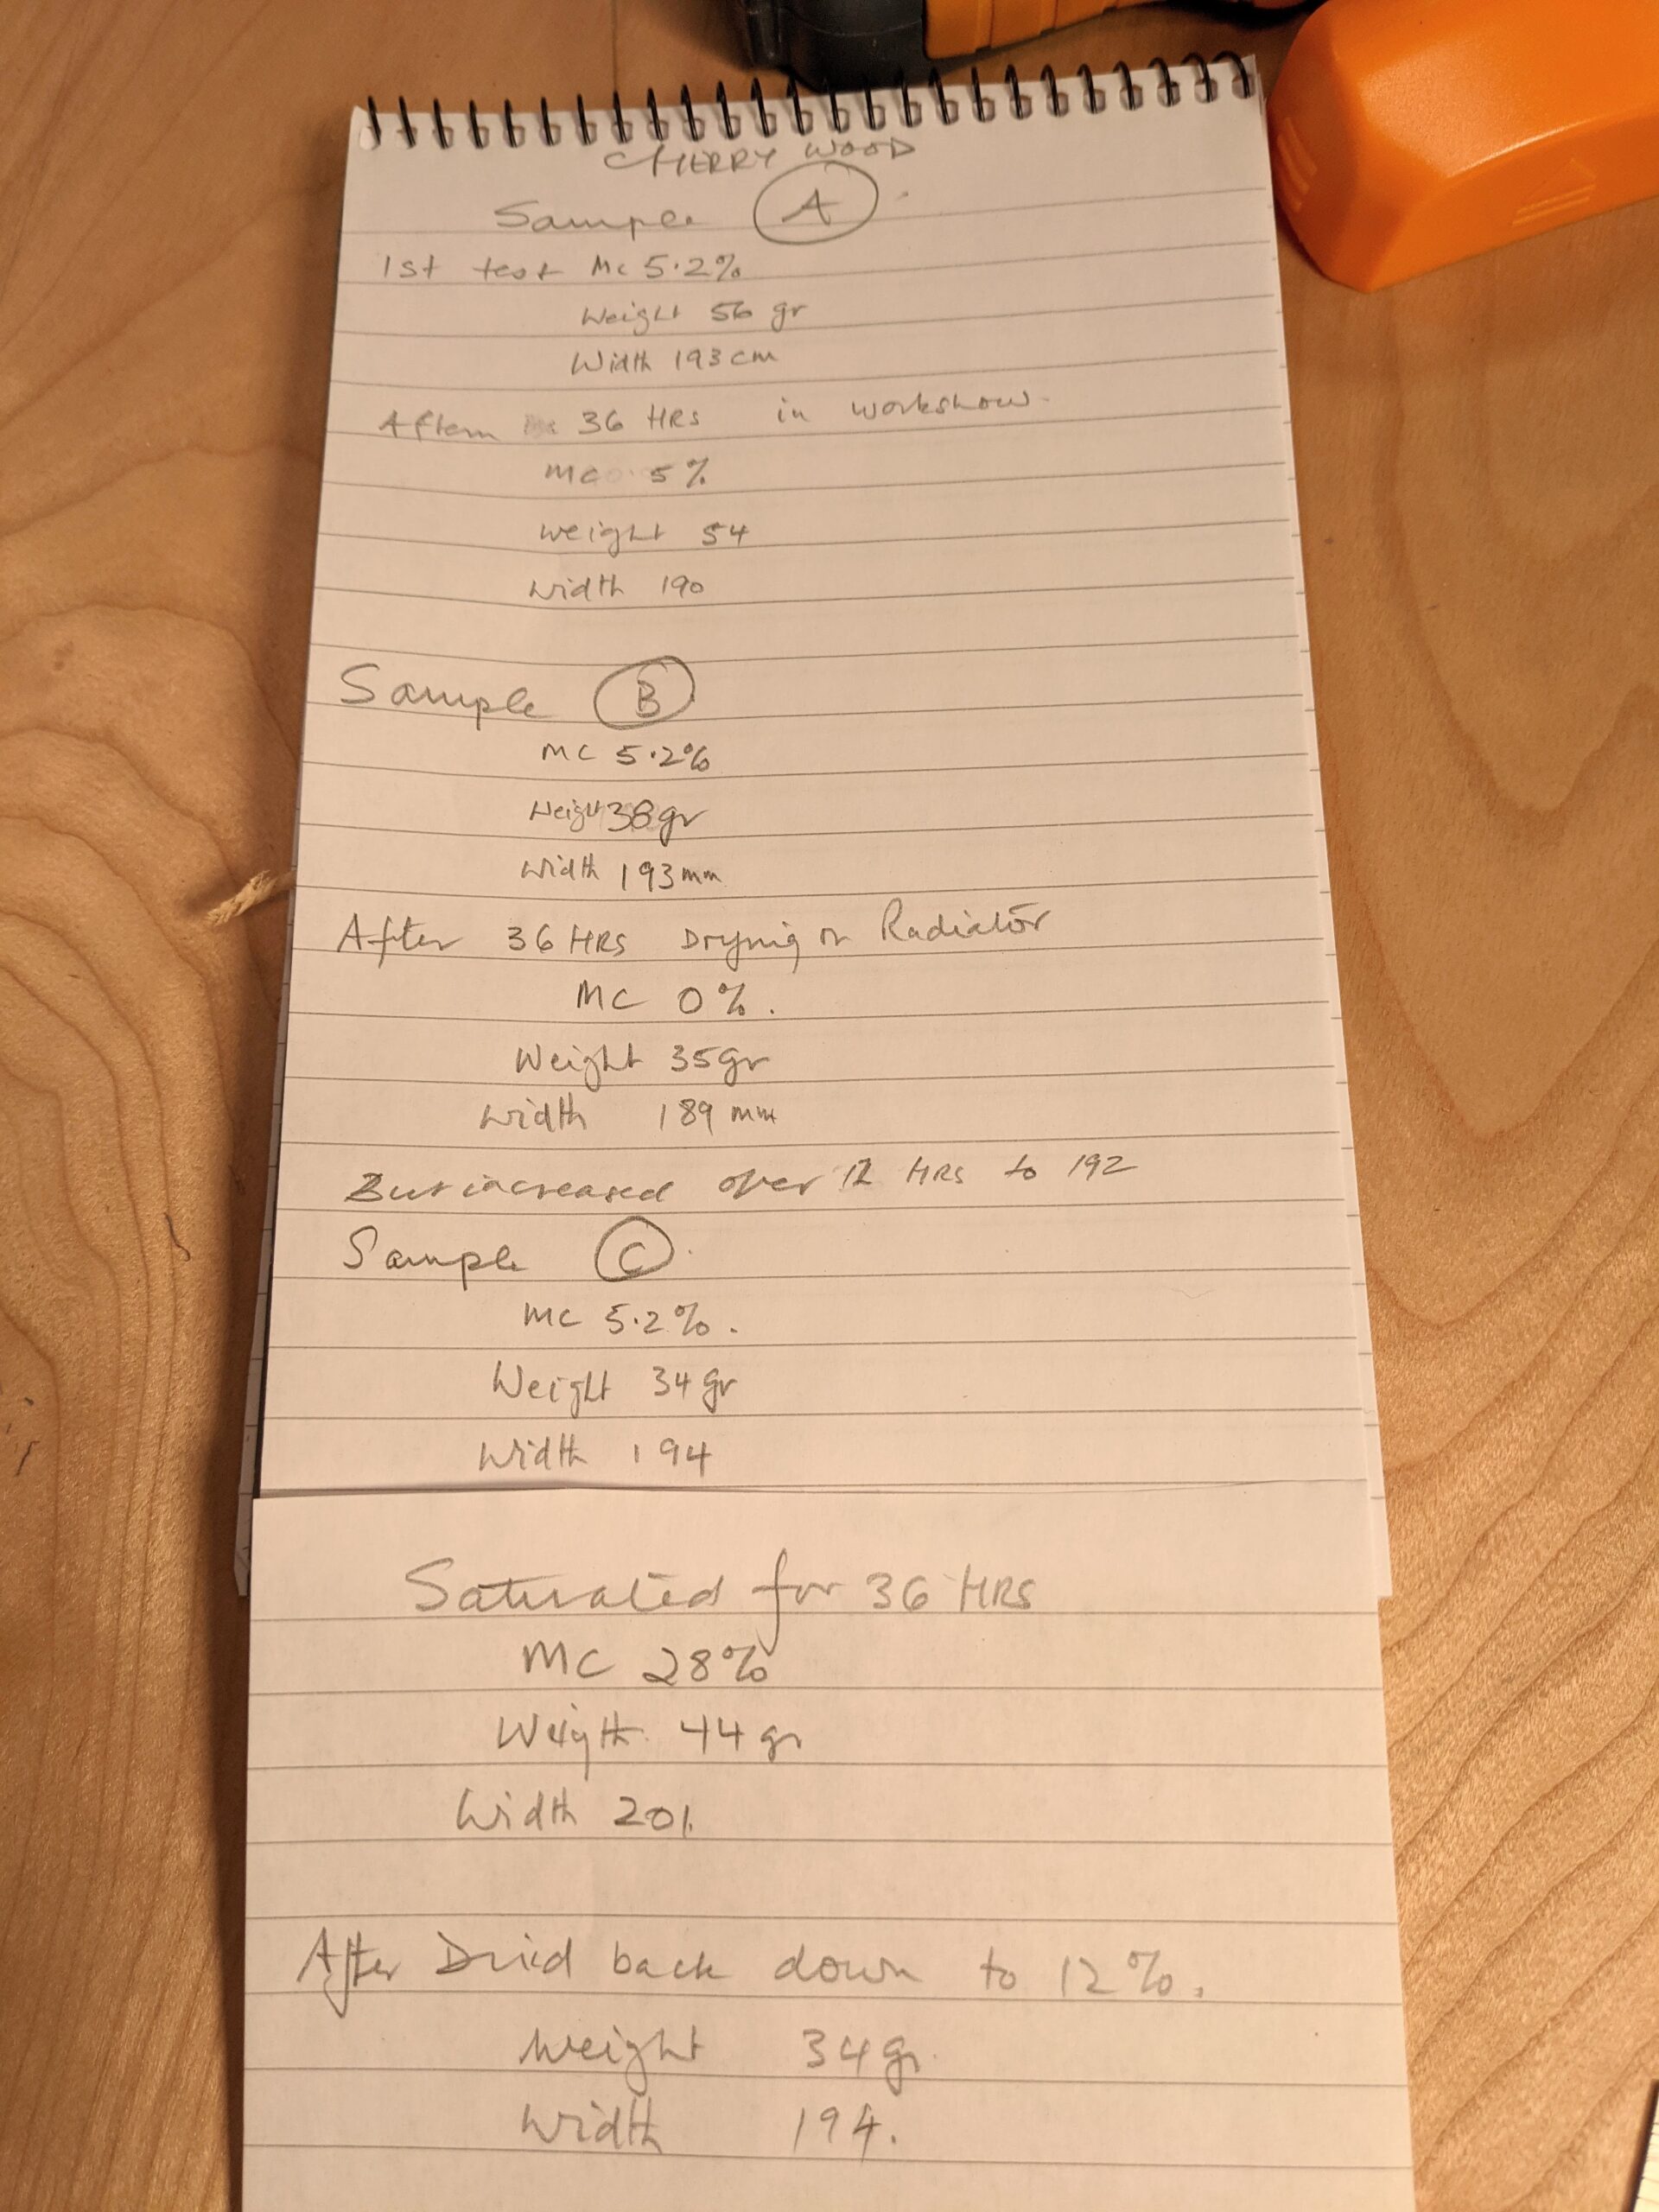 CHERRY WOOD
Sample A
1st test Mc 5.2%
Weight 56 gr
Width 193 cm
Aftern 36 HRS in workshow.
MC 5%
Weight 54
Width 190
Sample B
MC 5.2%
Weight 38gr
Width 193mm
After 36 HRS Drying on Radiator
MC 0%.
Weight 35gr
Width 189 mm
But increased over 12 HRS to 192
Sample C
MC 5.2%.
Weight 34 gr
Width 194
Saturated for 36 HRS
MC 28%
Weigth 44 gr
Width 201.
After Dried back down to 12%.
Weight 34 gr.
Width 194.